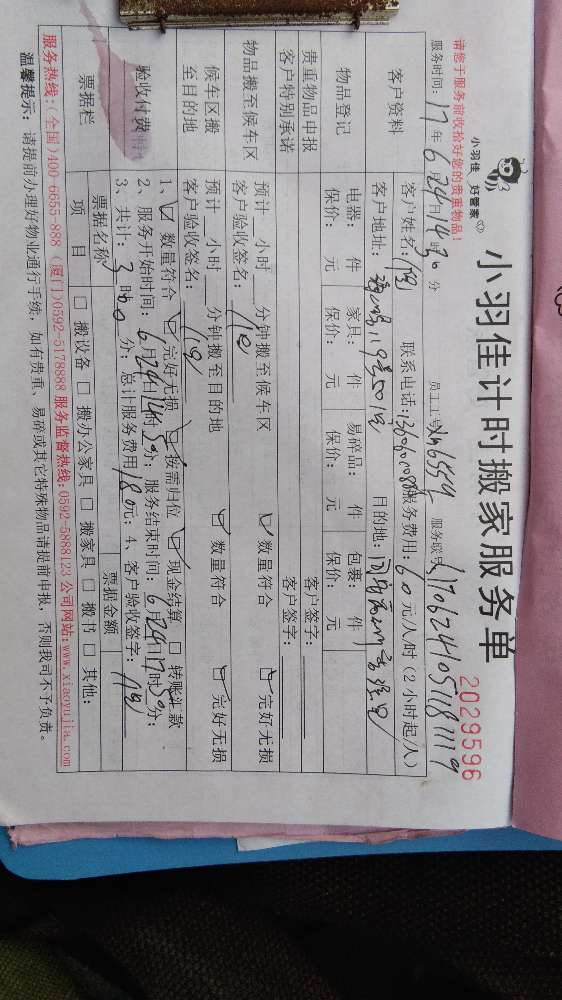 小羽佳 好管家
小羽佳计时搬家服务单
2029596
请您于服务前收拾好您的贵重物品!
服务时间: 17年6月24日14时30分 员工工号 服务联号
客户资料
客户姓名 联系电话: 服务费用: 60元/人/时(2小时起/人)
客户地址: 目的地:
物品登记
电器: 件 家具: 件 易碎品: 件 包裹: 件
保价: 元 保价: 元 保价: 元 保价: 元
贵重物品申报 客户签字:
客户特别承诺 客户签字:
物品搬至候车区
预计 小时 分钟搬至候车区 数量符合 完好无损
客户验收签名:
候车区搬至目的地
预计 小时 分钟搬至目的地 数量符合 完好无损
客户验收签名:
验收付费
1、数量符合 完好无损 按需归位 现金结算 转账汇款
2、服务开始时间: 6月24日14时30分; 服务结束时间: 6月24日17时30分;
3、共计: 3时0分; 总计服务费用180元; 4、客户验收签字:
票据栏
票据名称 票据金额
项目 搬设备 搬办公家具 搬家具 搬书 其他:
服务热线:(全国)400-6655-888 (厦门)0592-5178888 服务监督热线:0592-5888123 公司网站:www.xiaoyujia.com
温馨提示: 请提前办理好物业通行手续; 如有贵重、易碎或其它特殊物品请提前申报, 否则我司不予负责。